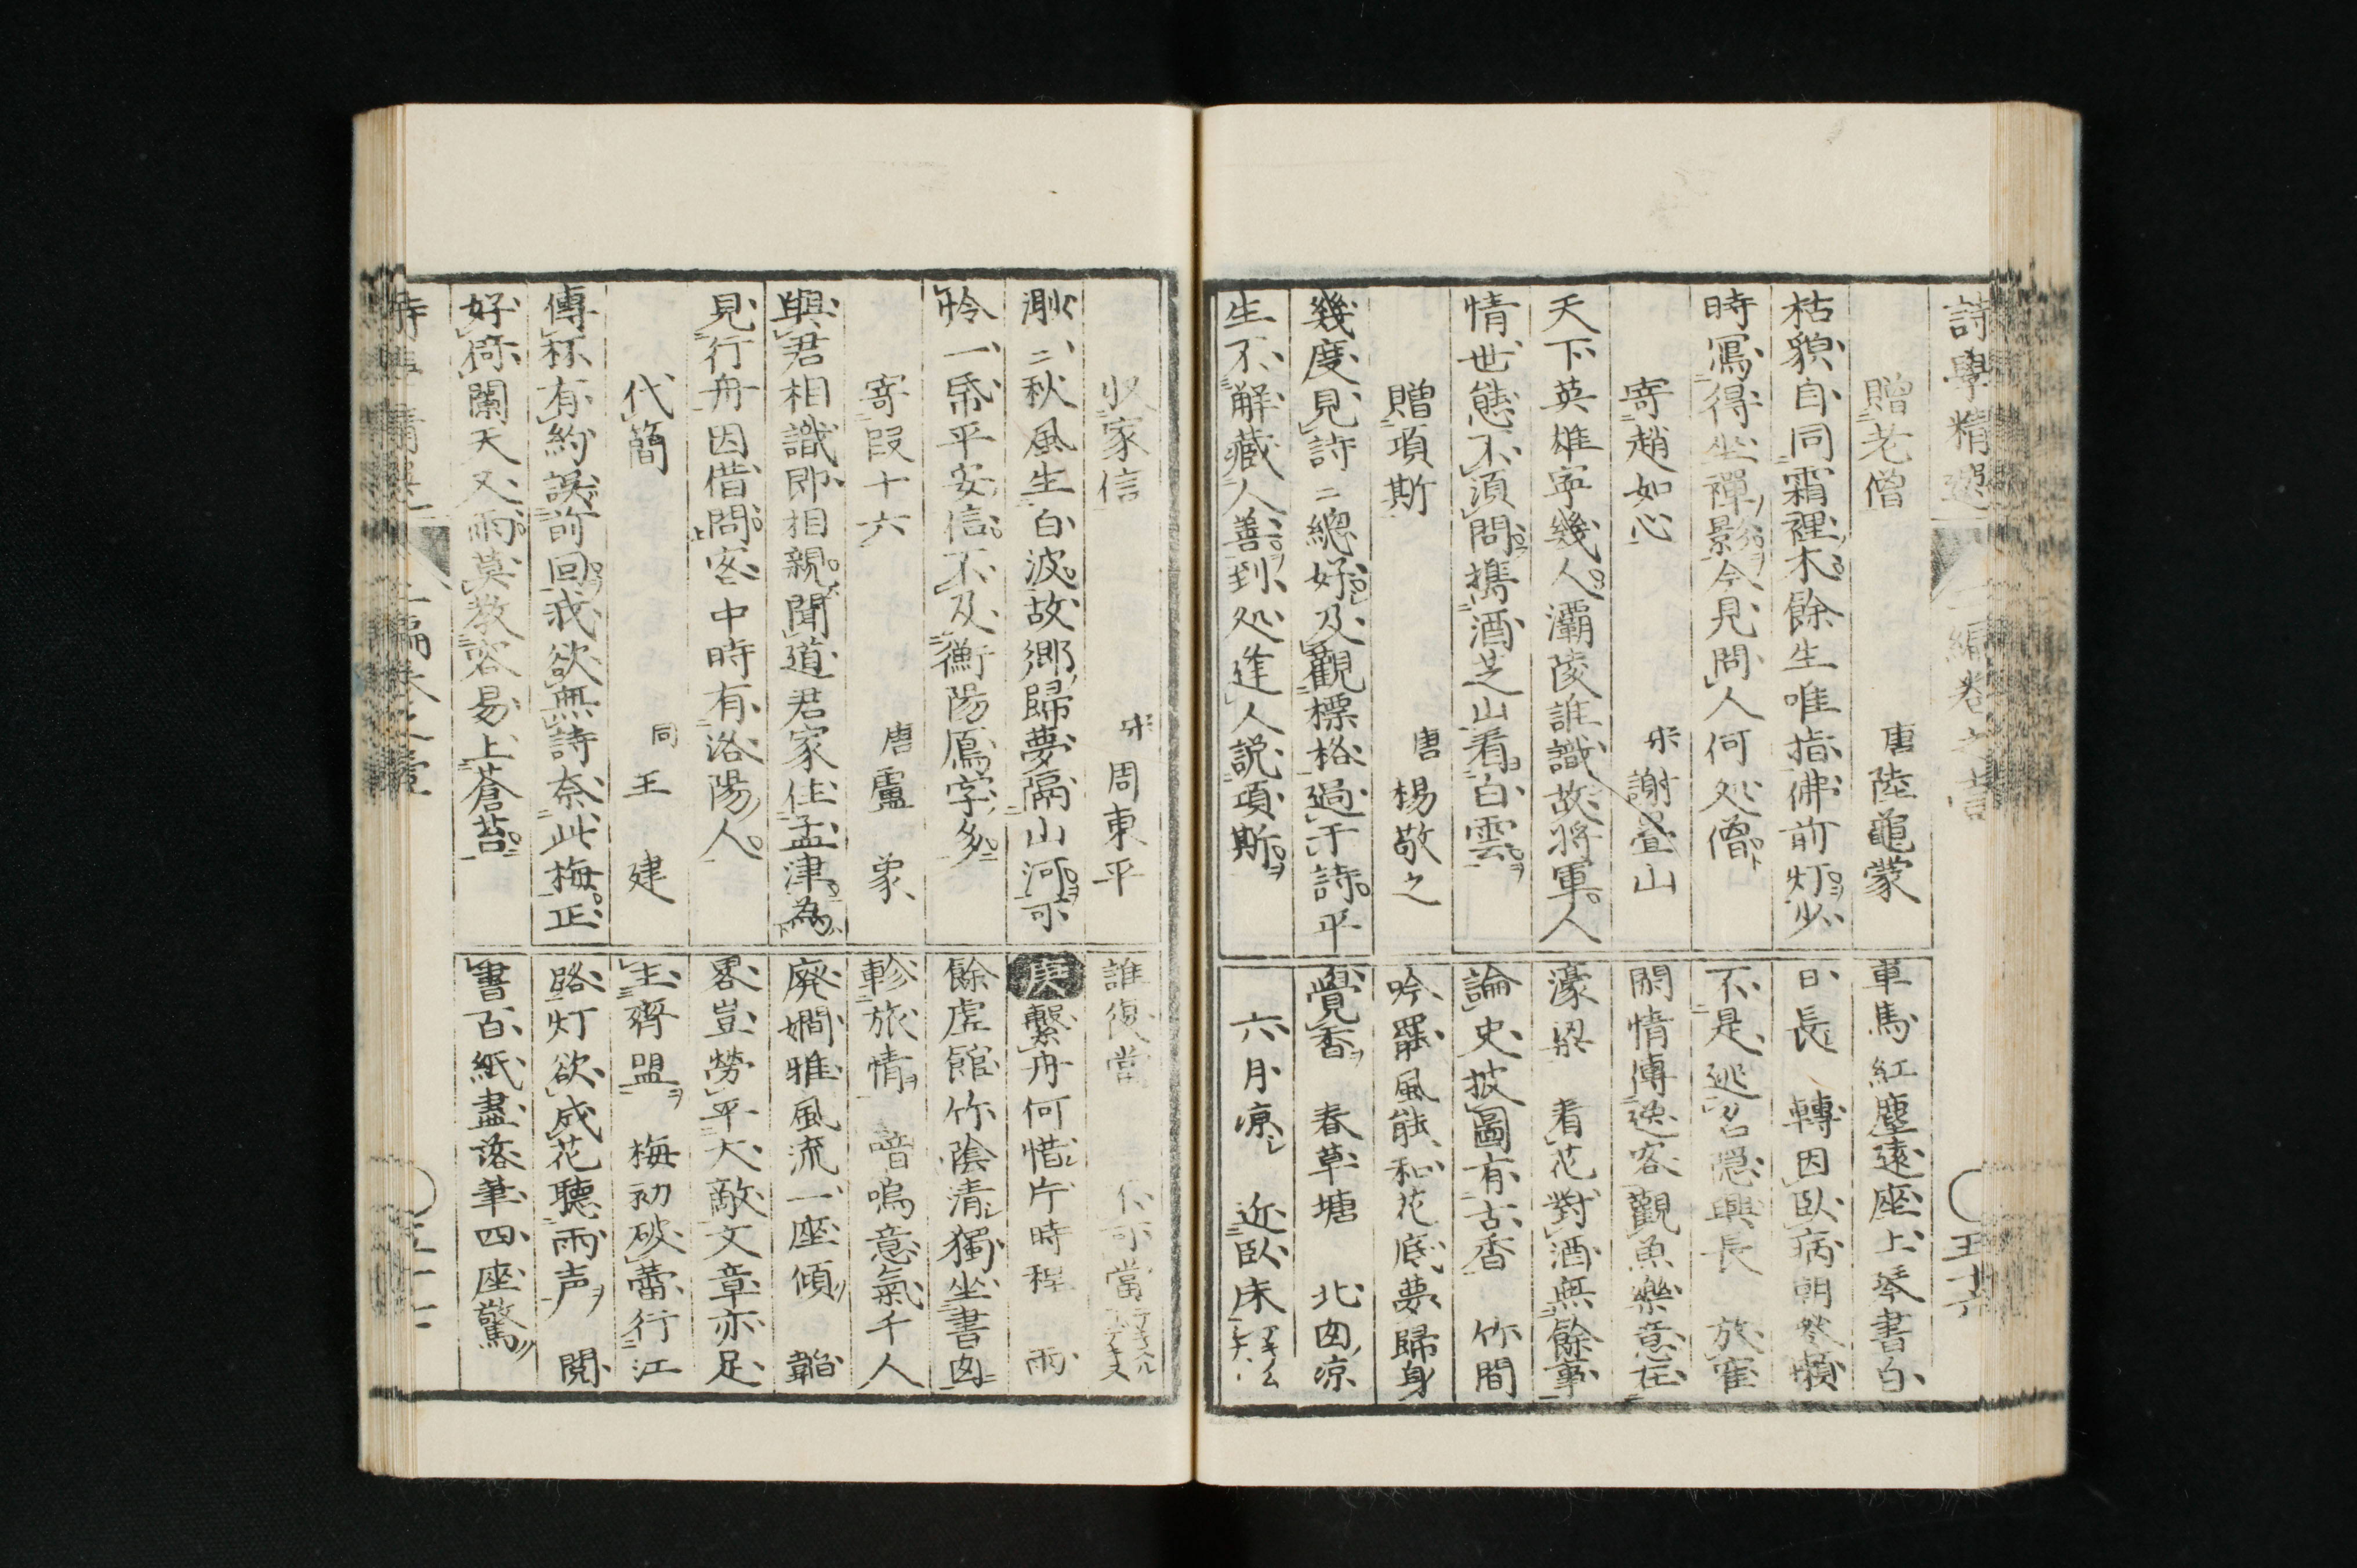 詩學精選 二編卷之壹 〇五十六
贈老僧 唐 陸龜蒙
枯貌自同霜裡木餘生唯指佛前灯少
時寫得坐禪影今見問人何処僧
寄趙如心 宋 謝疊山
天下英雄寧幾人灞陵誰識故將軍人
情世態不須問携酒芝山看白雲
贈項斯 唐 楊敬之
幾度見詩〻總好及觀標格過于詩平
生不解藏人善到処逢人説項斯
車馬紅塵遠座上琴書白
日長 轉因臥病朝參懶
不是逃名隱興長 放衙
閑情傳送客觀魚樂意在
濠梁 看花對酒無餘事
論史披圖有古香 竹間
吟罷風能和花底夢歸身
覺香 春草塘 北囱凉
六月凉 近臥床
收家信 宋 周東平
渺〻秋風生白波故郷歸夢隔山河可
怜一紙平安信不及衡陽鴈字多
寄段十六 唐 盧 象
與君相識即相親聞道君家住孟津為
見行舟因借問客中時有洛陽人
代簡 同 王 建
傳杯有約誤前回我欲無詩奈此梅正
好倚闌天又雨莫教容易上蒼苔
誰復當 不可當
庚 繫舟何惜片時程 雨
餘虚館竹陰清獨坐書囱
軫旅情 喑嗚意氣千人
廃嫺雅風流一座傾 韜
畧豈勞平大敵文章亦足
主齊盟 梅初破蕾行江
路灯欲成花聽雨声 閲
書百紙盡落筆四座驚